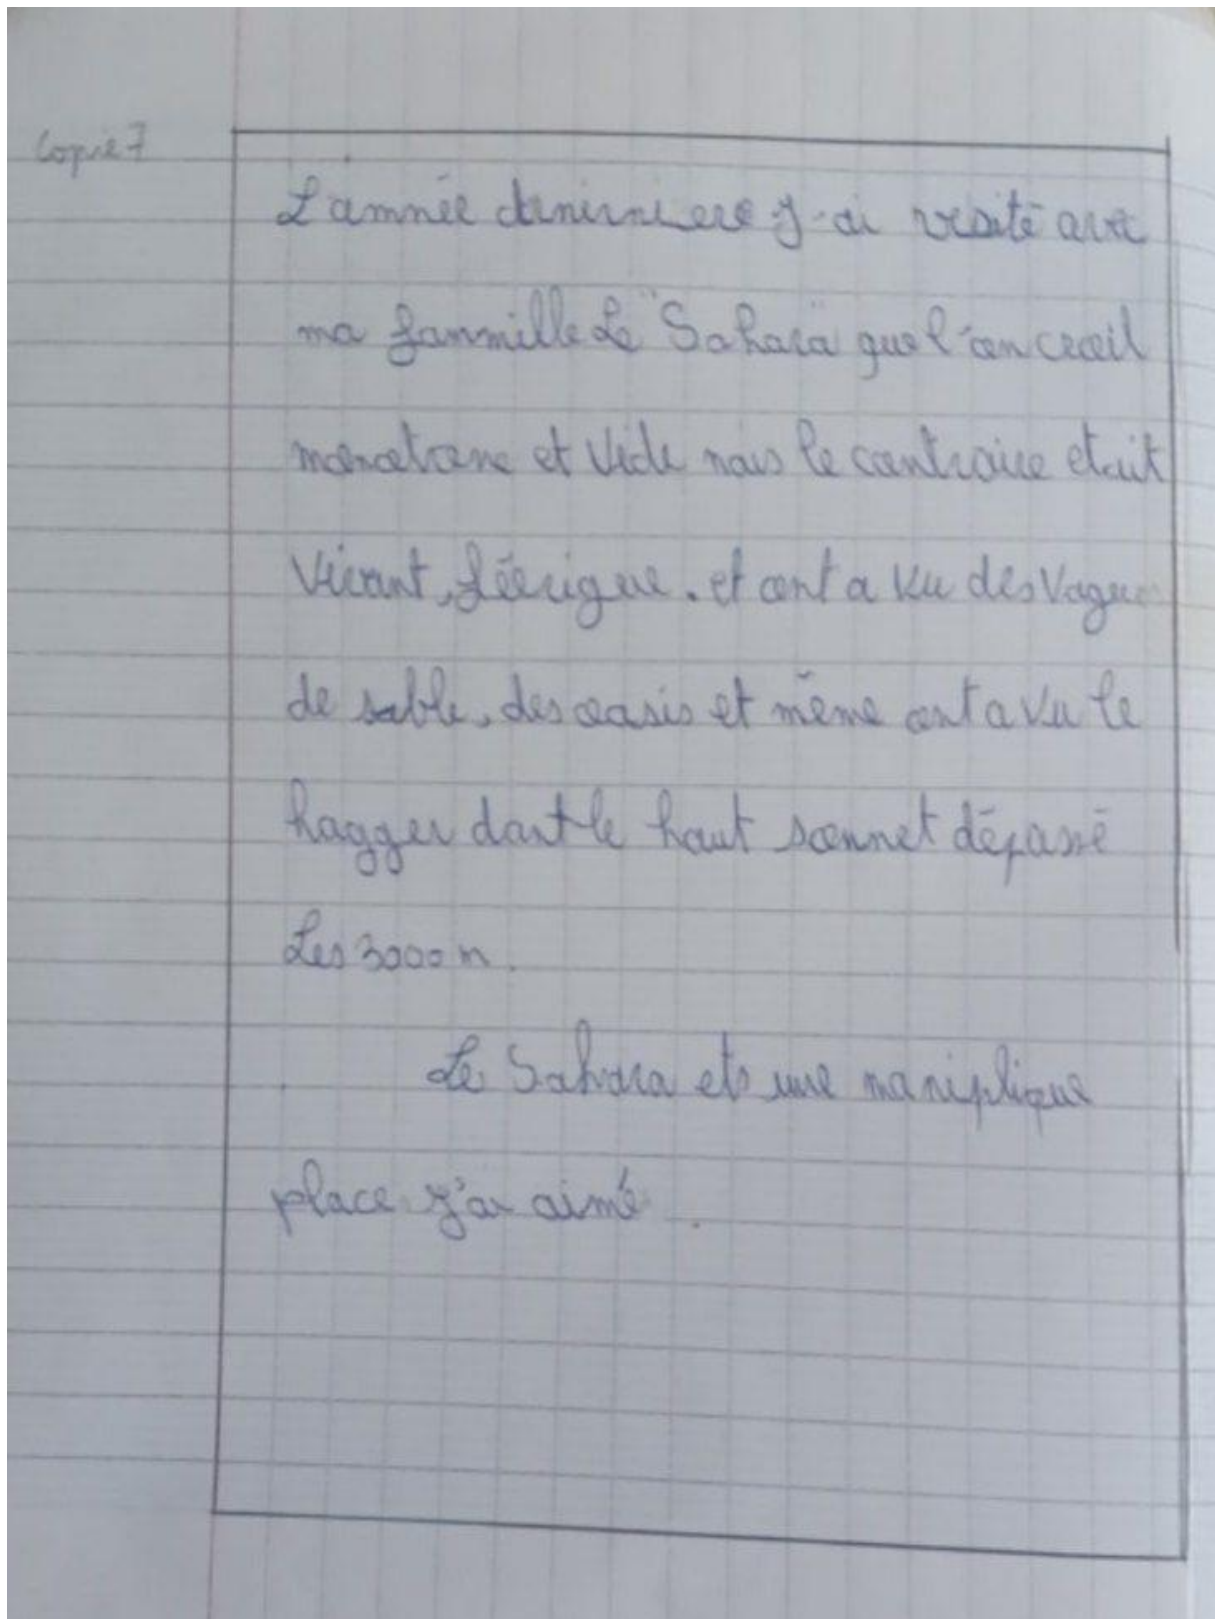 Copie 7
L'amnée denirniere J'ai visité avec
ma fammille Le "Sahara" que l'on croeil
monotone et vide mais le contraire etait
Vivant, féerique. et ont a vu des Vague
de sable, des oasis et même ont a vu le
hagger dont le haut sonnet dépassé
Les 3000 m.
Le Sahara ets une maniplique
place J'ai aimé.